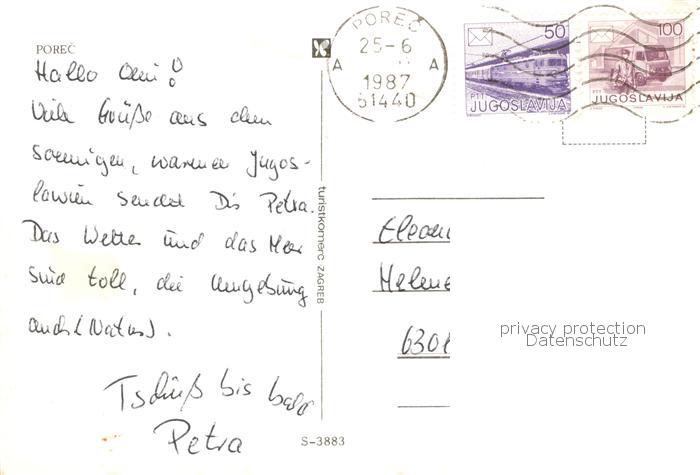 POREČ
Hallo Omi!
Viele Grüße aus dem
sonnigen, warmen Jugos-
lawien sendet Dir Petra.
Das Wetter und das Meer
sind toll, die Umgebung
auch (Natur).
Tschüß bis bald
Petra
turistkomerc ZAGREB
S-3883
POREČ
25-6
1987
A A
51440
50
PTT
JUGOSLAVIJA
100
PTT
JUGOSLAVIJA
Helene
privacy protection
Datenschutz